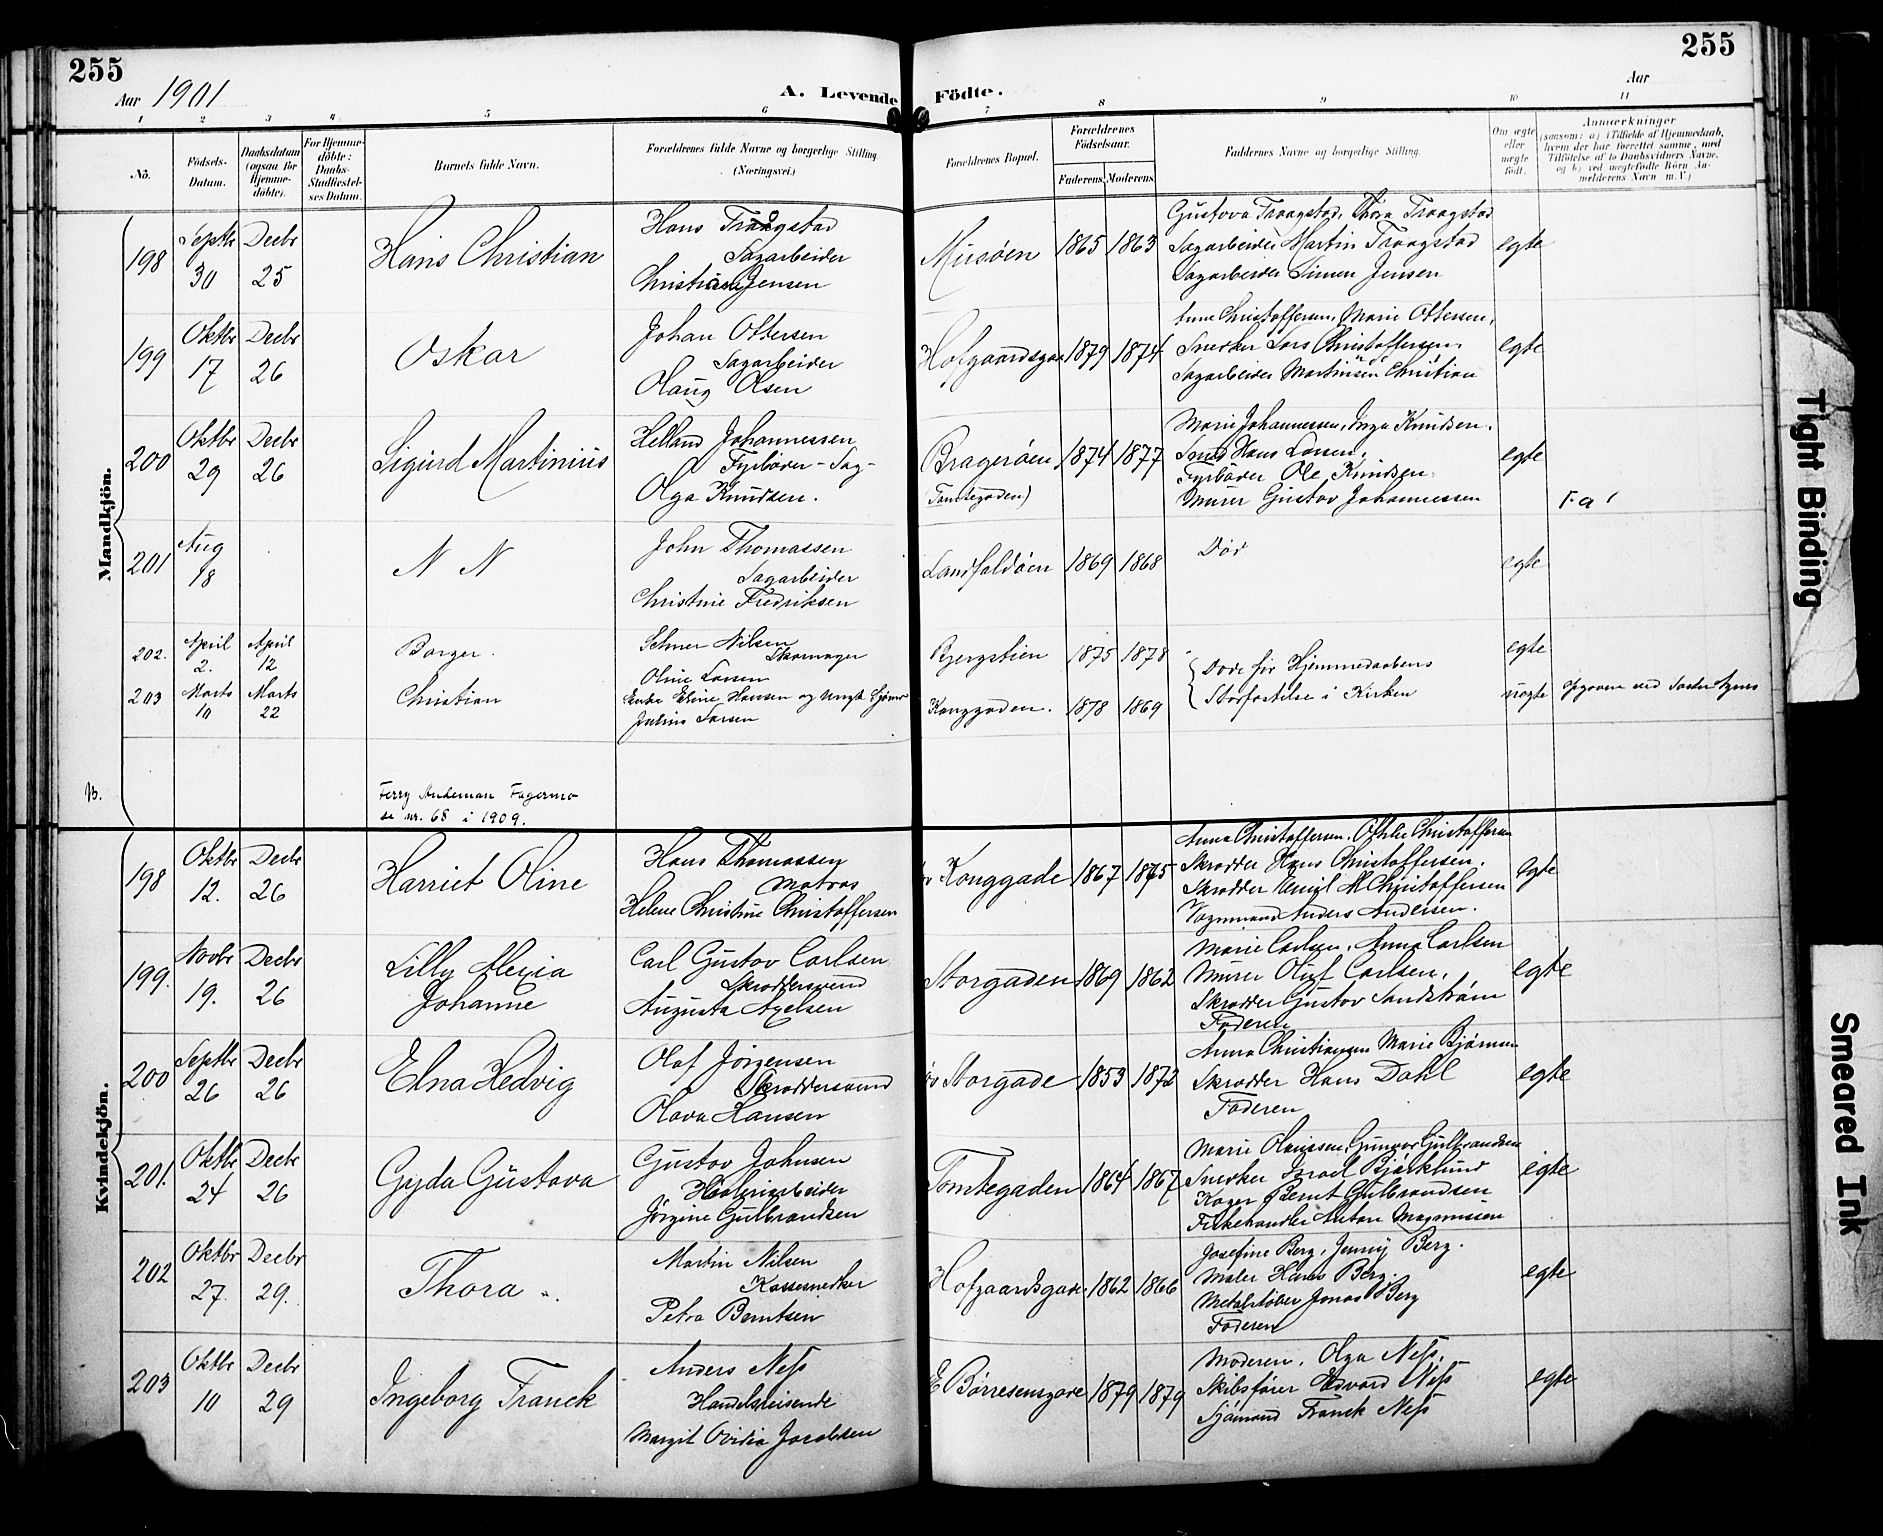 255
Aar 1901
A. Levende Födte.
Aar
255
1 2 3 4 5 6 7 8 9 10 11
No.
Födsels-Datum.
Daabsdatum (ogsaa for Hjemmedöbte).
For Hjemmedöbte: Daabs-Stadfæstelses Datum.
Barnets fulde Navn.
Forældrenes fulde Navne og borgerlige Stilling. (Næringsvei.)
Forældrenes Bopæl.
Forældrenes Födselsaar.
Faderens. Moderens.
Faddernes Navne og borgerlige Stilling.
Om ægte eller uægte födt.
Anmærkninger
(saasom: a) i Tilfælde af Hjemmedaab, hvem der har forrettet samme, med Tilföielse af to Daabsvidners Navne, og b) ved uægtefödte Börn Anmelderens Navn m. V.)
Mandkjön.
198 Septbr 30 Decbr 25 Hans Christian
Hans Traagstad
Sagarbeider
Christiane Jensen
Musøen 1865 1863
Gustava Traagstad, Thora Traagstad
Sagarbeider Martin Traagstad
Sagarbeider Simen Jensen
egte
199 Oktbr 17 Decbr 26 Oskar
Johan Ottersen
Sagarbeider
Olaug Olsen
Hofgaardsgade 1879 1874
Anne Christoffersen, Marie Ottersen,
Snedker Lars Christoffersen,
Sagarbeider Martinsen Christian
egte
200 Oktbr 29 Decbr 26 Sigurd Martinius
Helland Johannessen
Fyrbøder - Sag-
Olga Knudsen.
Bragerøen
(Tomtegaden)
1874 1877
Marie Johannessen, Inga Knudsen.
Hans Larsen,
Fyrbøder Ole Knudsen
Murer Gustav Johannessen
egte
201 Aug 18 N N
John Thomassen
Sagarbeider
Christine Fredriksen
Landfaldøen 1869 1868
Død
egte
202. April 2. April 12 Borger.
Nilsen
Skomager
Oline Larsen
Bjergstien 1875 1878
egte
203 Marts 10 Marts 22 Christian
Enke Eline Hansen og Ungk
Julius Larsen
Konggaden. 1878 1869
Døde før Hjemmedaabens
Stadfæstelse i Kirken
uegte
Opgivne ved Søster Agnes
Ferry Andeman Fagermo
se nr. 68 i 1909.
Kvindekjön.
198 Oktbr 12. Decbr 26 Harriet Oline
Hans Thomassen
Matros
Helene Christine Christoffersen
Konggade 1867 1875
Anna Christoffersen, Othilie Christoffersen
Skrædder Hans Christoffersen.
Skrædder Emil M Christoffersen
Vognmand Anders Andersen.
egte
199. Novbr 19. Decbr 26 Lilly Alexia
Johanne
Carl Gustav Carlsen
Skræddersvend
Augusta Axelsen
Storgaden 1869 1862
Marie Carlsen, Anna Carlsen
Murer Oluf Carlsen,
Skrædder Gustav Sandstrøm
Faderen
egte
200 Septbr 26 Decbr 26 Elna Hedvig
Olaf Jørgensen
Skræddersvend
Olava Hansen
Storgade 1853 1872
Anna Christiansen Marie Bjørnsen
Skrædder Hans Dahl
Faderen
egte
201. Oktbr 24 Decbr 26 Gyda Gustava
Gustav Johnsen
Høvleriarbeider
Jørgine Gulbrandsen
Tomtegaden 1864 1867
Marie Olaussen, Gunvor Gulbrandsen
Snedker Israel Bjørklund
Bernt Gulbrandsen
Fiskehandler Anton Magnussen
egte
202 Oktbr 27. Decbr 29. Thora
Martin Nilsen
Kassesnedker
Petra Berntsen
Hofgaardsgade 1862 1866
Josefine Berg, Jenny Berg.
Maler Hans Berg.
Metalstøber Jonas Berg
Faderen
egte
203 Oktbr 10 Decbr 29 Ingeborg Franck
Anders Ness
Handelsreisende
Margit Ovidia Jacobsen
E Børresensgade 1879 1879
Moderen, Olga Ness,
Skibsfører Edvard Ness
Sjømand Franck Ness
egte
Tight Binding
Smeared Ink